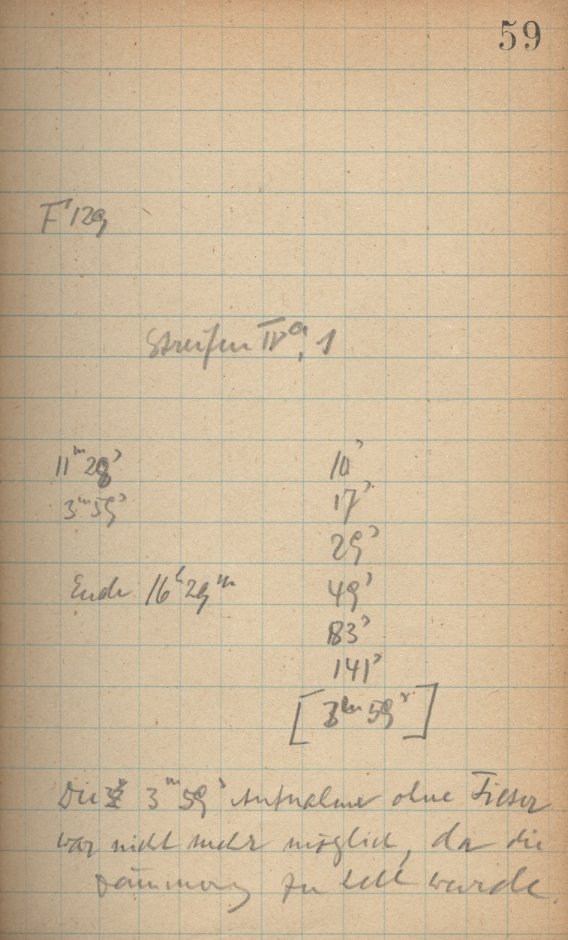 59
F' 129
Streifen IV a, 1
11ᵐ 28ˢ 10ˢ
3ᵐ 59ˢ 17ˢ
29ˢ
Ende 16ʰ 29ᵐ 49ˢ
83ˢ
141ˢ
[3ᵐ 59ˢ]
Die 3ᵐ 59ˢ Aufnahme ohne Filter
war nicht mehr möglich, da die
Dämmerung zu hell wurde.